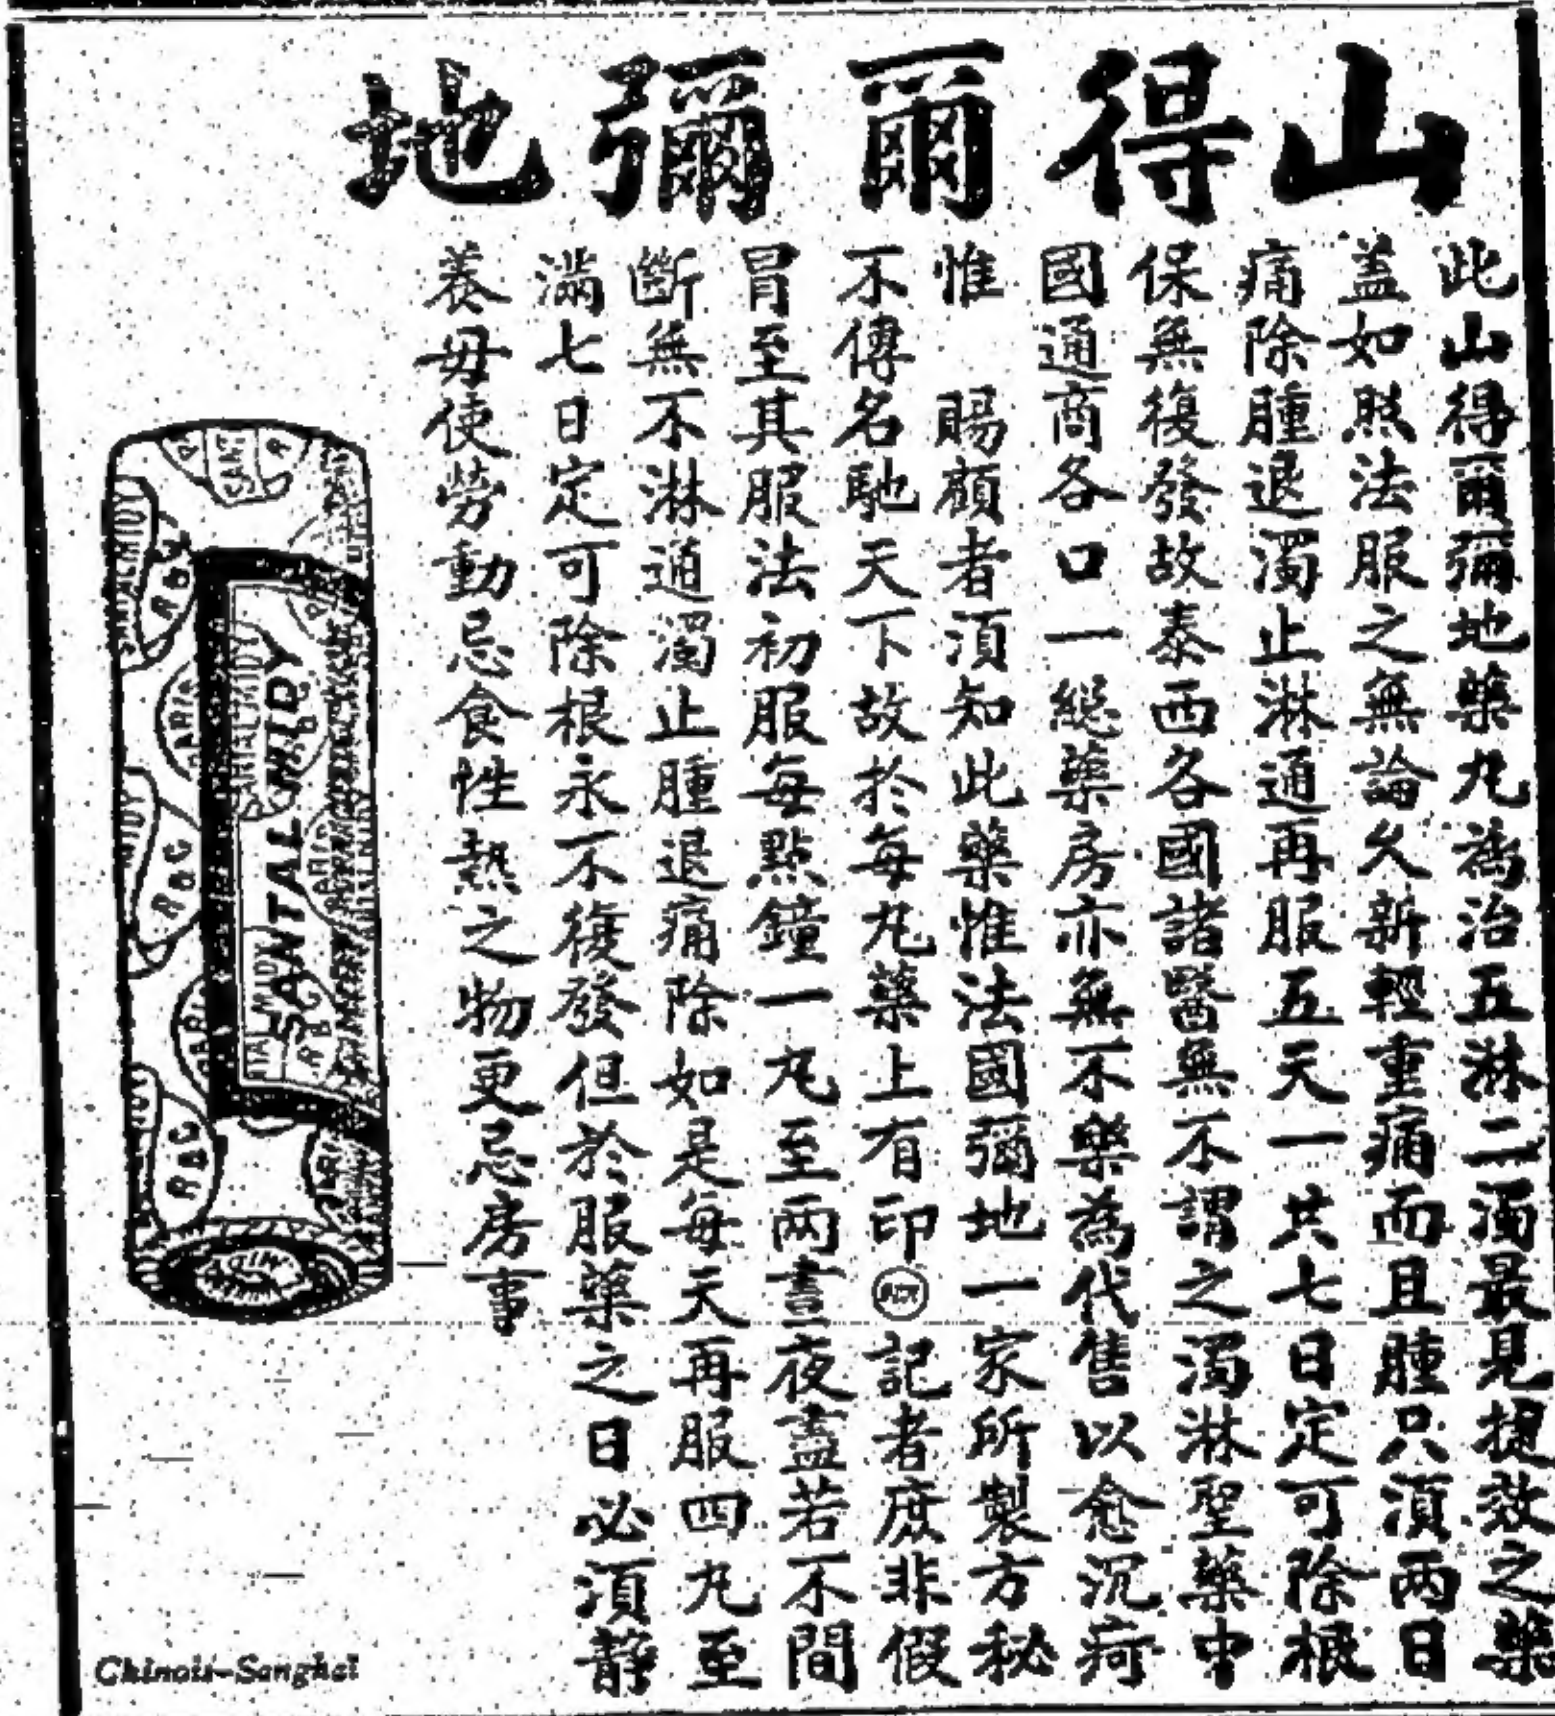 山得爾彌地
此山得爾彌地藥丸為治五淋二濁最見捷效之藥
盖如照法服之無論久新輕重痛而且腫只湏兩日
痛除腫退濁止淋通再服五天一共七日定可除根
保無復發故泰西各國諸醫無不謂之濁淋聖藥中
國通商各口一總藥房亦無不樂為代售以愈沉疴
惟　賜顧者湏知此藥惟法國彌地一家所製方秘
不傳名馳天下故於每丸藥上有印記者庶非假
冒至其服法初服每點鐘一丸至兩晝夜盡若不間
斷無不淋通濁止腫退痛除如是每天再服四丸至
滿七日定可除根永不復發但於服藥之日必湏靜
養毋使勞動忌食性熱之物更忌房事
SANTAL MIDY
Chinois-Sanghai